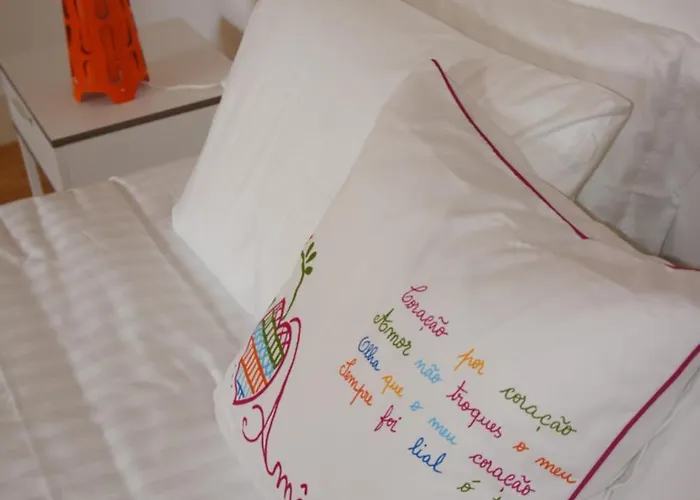 Coração por coração
Amor não troques o meu
Olha que o meu coração
Sempre foi lial ó t
Amô